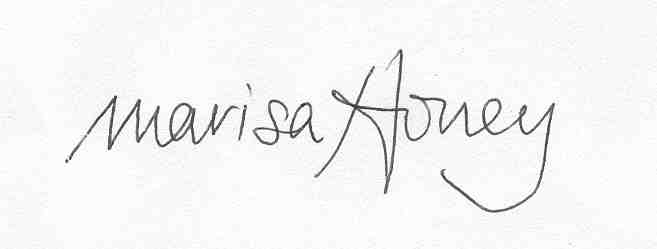 marisa Honey